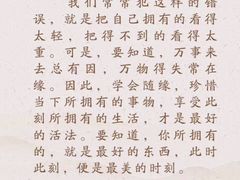 我们常常犯这样的错
误，就是把自己拥有的看得
太轻，把得不到的看得太
重。可是，要知道，万事来
去总有因，万物得失常在
缘。因此，学会随缘，珍惜
当下所拥有的事物，享受此
刻所拥有的生活，才是最好
的活法。要知道，你所拥有
的，就是最好的东西，此时
此刻，便是最美的时刻。